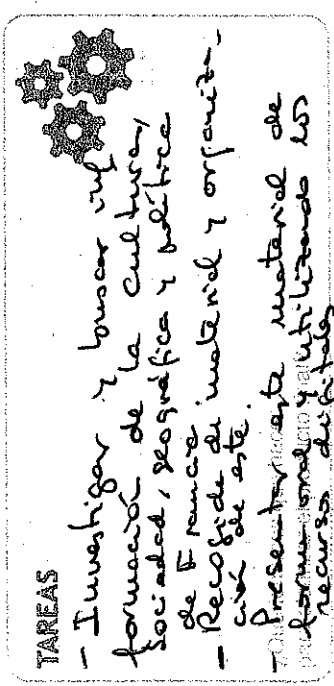 TAREAS
- Investigar y buscar in
formación de la cultura,
sociedad, geográfica y política
de Francia
- Recogida de material y organiza-
ción de este.
- Presentar este material de
forma oral y utilizando los
recursos digitales